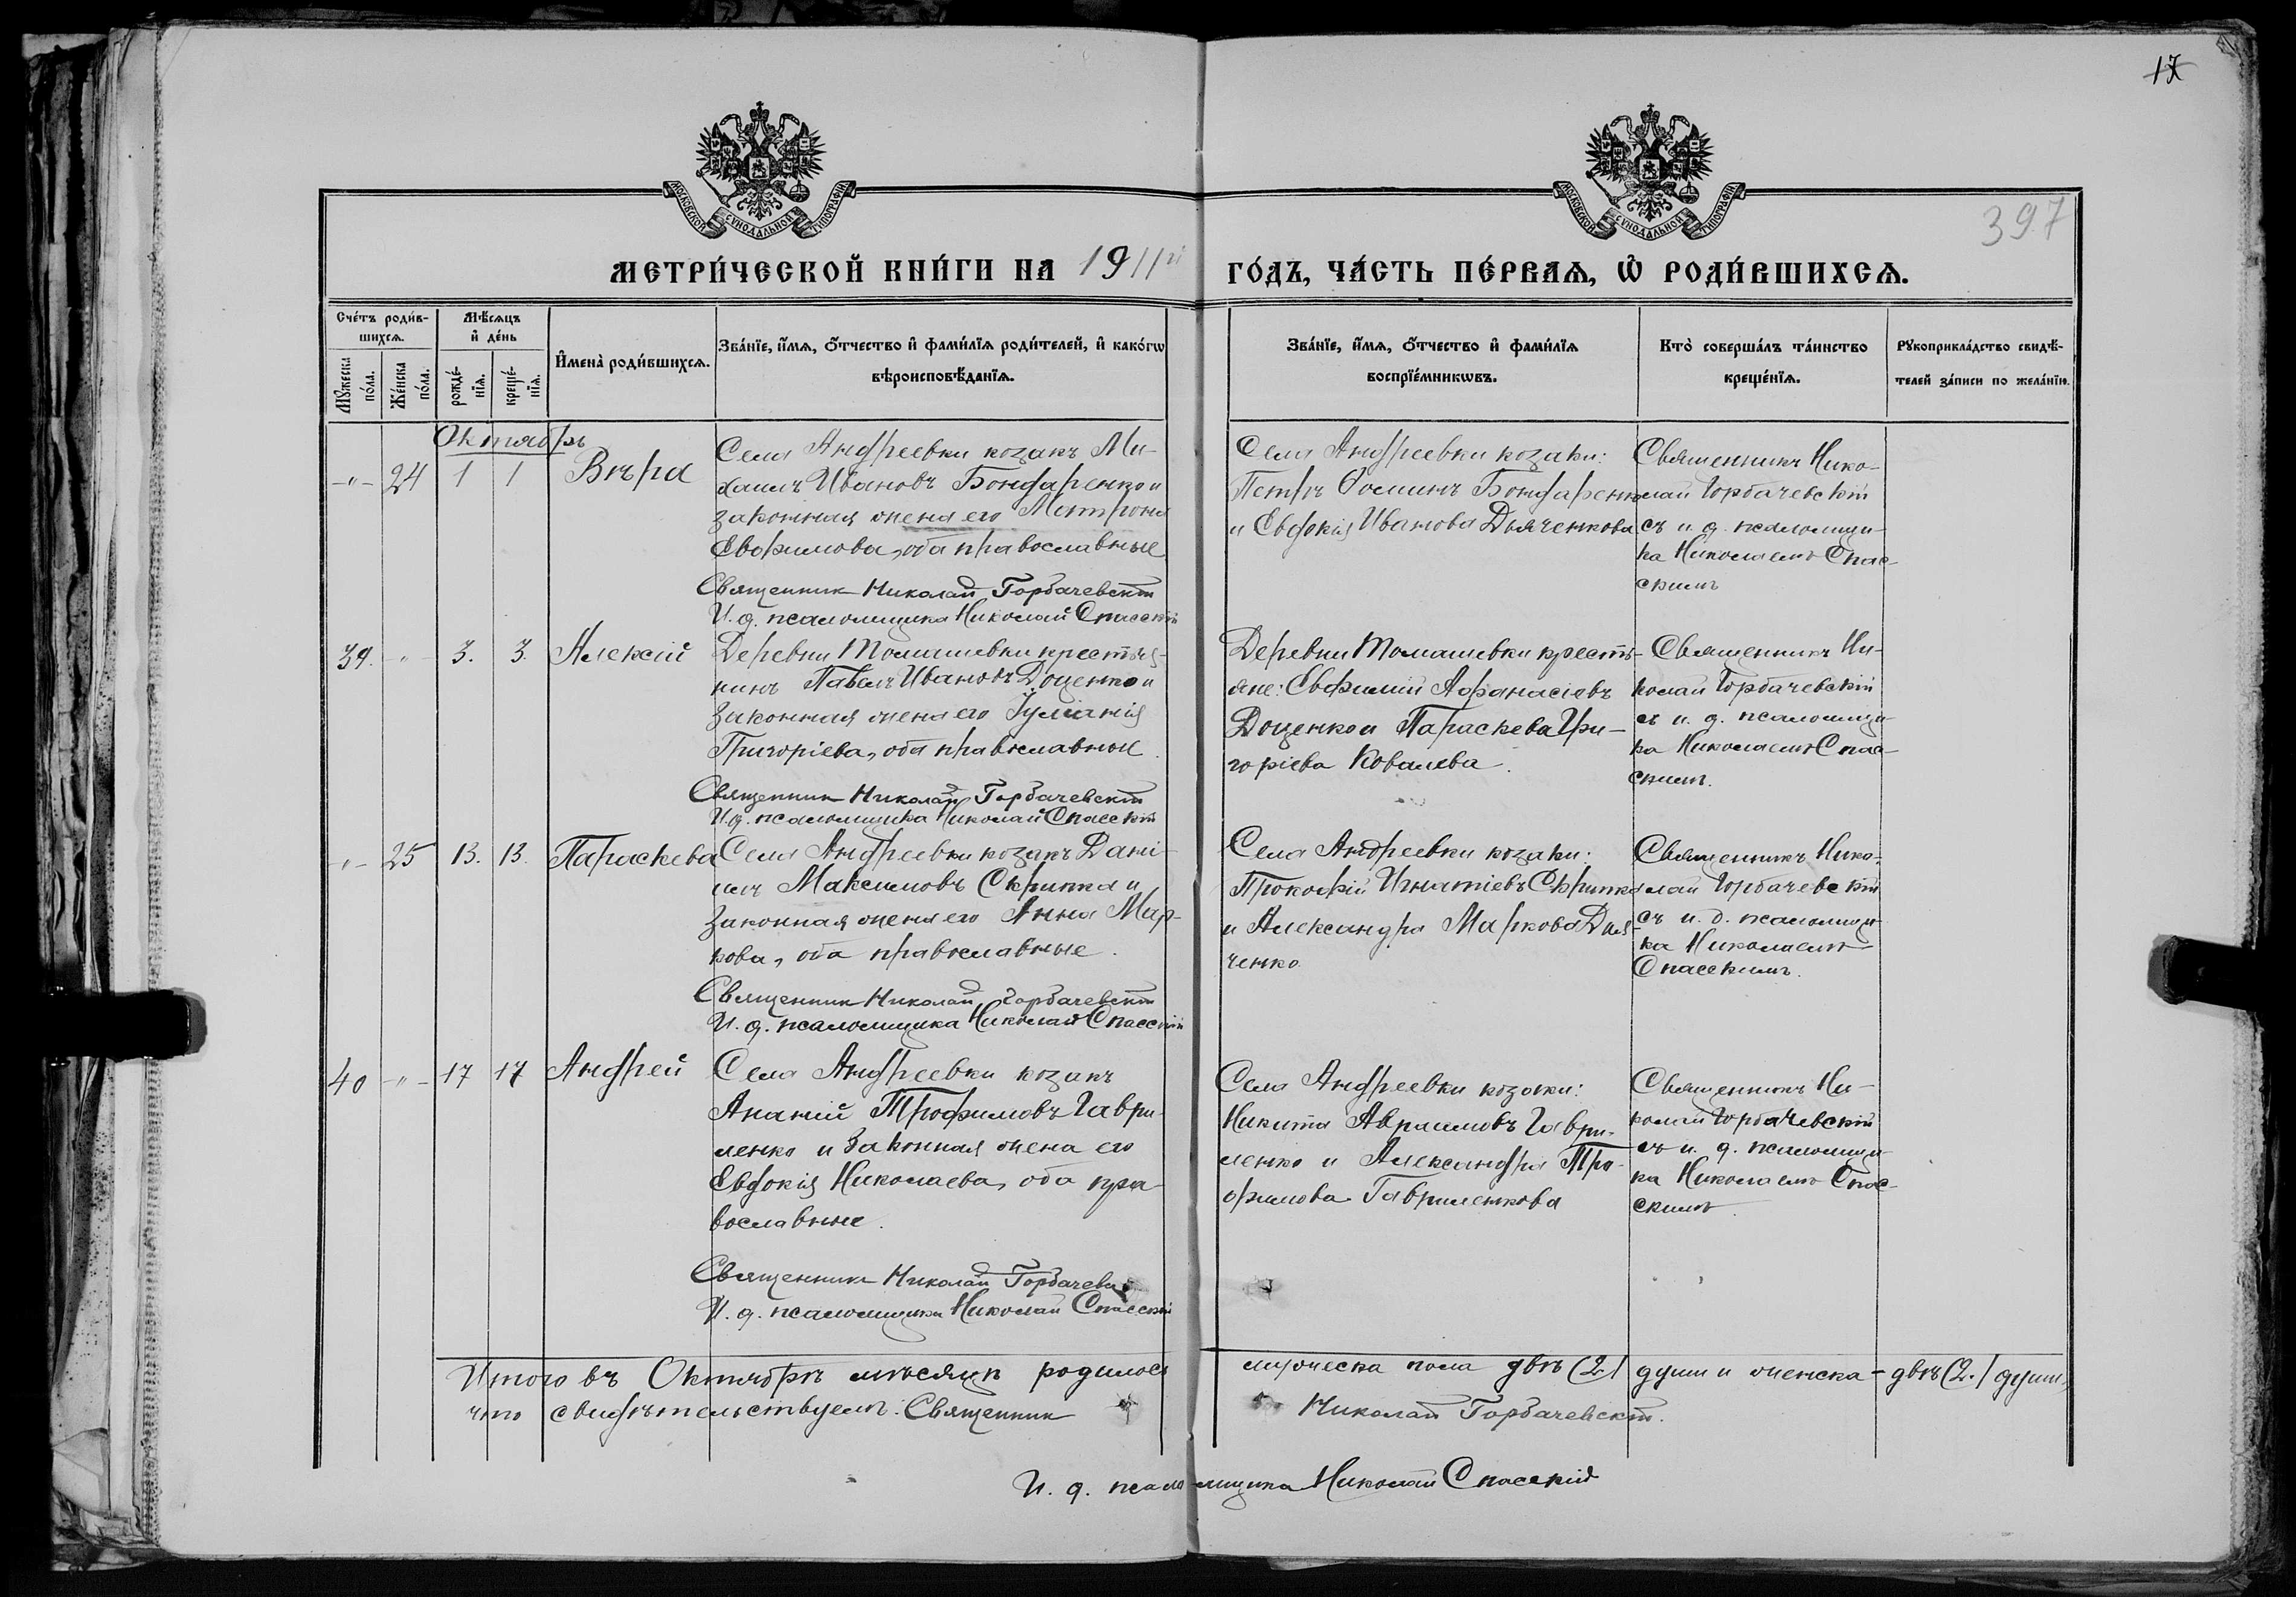 17
397
МОСКОВСКОЙ СѴНОДАЛЬНОЙ ТИПОГРАФІИ
МОСКОВСКОЙ СѴНОДАЛЬНОЙ ТИПОГРАФІИ
МЕТРИ́ЧЕСКОЙ КНИ́ГИ НА 1911й ГО́ДЪ, ЧА́СТЬ ПЕ́РВАѦ, Ѽ РОДИ́ВШИХСѦ.
Сче́тъ роди́в-
шихсѧ.
Мꙋ́жеска по́ла.
Же́нска по́ла.
Мѣ́сѧцъ
и҆ де́нь
рожде́-
нїѧ.
креще́-
нїѧ.
И҆мена̀ роди́вшихсѧ.
Зва́нїе, и҆́мѧ, ѻ҆́тчество и҆ фами́лїѧ роди́телей, и҆ како́гѡ
вѣроисповѣ́данїѧ.
Зва́нїе, и҆́мѧ, ѻ҆́тчество и҆ фами́лїѧ
воспрїе́мникѡвъ.
Кто̀ соверша́лъ та́инство
креще́нїѧ.
Рꙋкоприкла́дство свидѣ́-
телей за́писи по жела́нїю.
Октябрь
-"- 24 1 1 Вѣра
Села Андреевки козакъ Ми-
хаилъ Ивановъ Бондаренко и
законная жена его Матрона
Евфимова, оба православные
Священник Николай Горбачевскій
И. д. псаломщика Николай Спасскій
Села Андреевки козаки:
Петръ Фоминъ Бондаренко
и Евдокія Иванова Дьяченкова
Священникъ Нико-
лай Горбачевскій
съ и. д. псаломщи-
ка Николаемъ Спас-
скимъ
39. -"- 3. 3. Алексій
Деревни Томашевки крестья-
нинъ Павелъ Ивановъ Доценко и
законная жена его Іуліанія
Григоріева, оба православные.
Священник Николай Горбачевскій
И. д. псаломщика Николай Спасскій
Деревни Томашевки кресть-
яне: Евфимій Афанасіевъ
Доценко и Параскева Гри-
горіева Ковалева.
Священникъ Ни-
колай Горбачевскій
съ и. д. псаломщи-
ка Николаемъ Спас-
скимъ.
-"- 25 13. 13. Параскева
Села Андреевки козакъ Дані-
илъ Максимовъ Скрипка и
законная жена его Анна Мар-
кова, оба православные.
Священник Николай Горбачевскій
И. д. псаломщика Николай Спасскій
Села Андреевки козаки:
Прокофій Игнатіевъ Скрипка
и Александра Маркова Дья-
ченко
Священникъ Нико-
лай Горбачевскій
съ и. д. псаломщи-
ка Николаемъ
Спасскимъ.
40 -"- 17 17 Андрей
Села Андреевки козакъ
Ананій Трофимовъ Гаври-
ленко и законная жена его
Евдокія Николаева, оба пра-
вославные.
Священник Николай Горбачевскій
И. д. псаломщика Николай Спасскій
Села Андреевки козаки:
Никита Авраамовъ Гаври-
ленко и Александра Тро-
фимова Гавриленкова
Священникъ Ни-
колай Горбачевскій
съ и. д. псаломщи-
ка Николаемъ Спас-
скимъ.
Итого въ Октябрѣ мѣсяцѣ родилось мужеска пола двѣ (2.) души и женска - двѣ (2.) души,
что свидѣтельствуемъ: Священник Николай Горбачевскій.
И. д. псаломщика Николай Спасскій